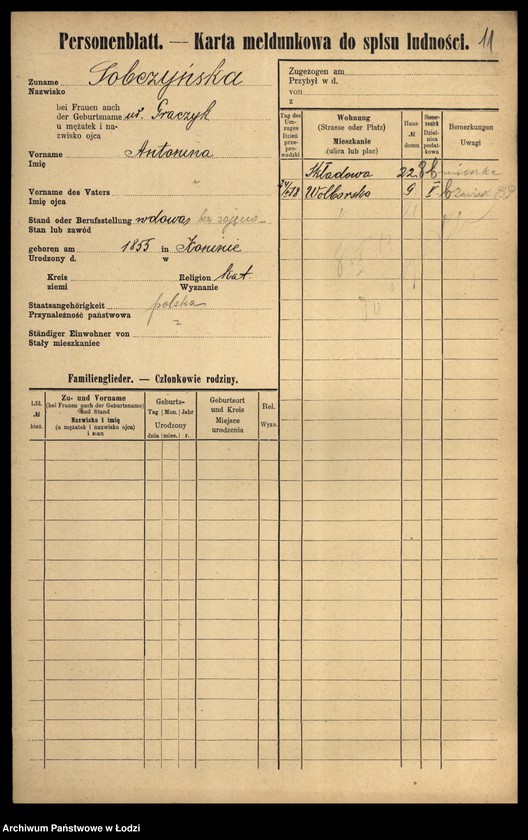 Personenblatt. — Karta meldunkowa do spisu ludności.
11
Zuname Sobczyńska
Nazwisko
bei Frauen auch
der Geburtsname ur. Graczyk
u mężatek i na-
zwisko ojca
Vorname Antonina
Imię
Vorname des Vaters
Imię ojca
Stand oder Berufsstellung wdowa bez zajęcia
Stan lub zawód
geboren am 1855 in Koninie
Urodzony d. w
Kreis Religion kat.
ziemi Wyznanie
Staatsangehörigkeit polska
Przynależność państwowa
Ständiger Einwohner von
Stały mieszkaniec
Familienglieder. — Członkowie rodziny.
Lfd. № bież.
Zu- und Vorname
(bei Frauen auch der Geburtsname)
und Stand
Nazwisko i imię
(u mężatek i nazwisko ojca)
i stan
Geburts-
Tag Mon. Jahr
Urodzony
dnia mies. r.
Geburtsort
und Kreis
Miejsce
urodzenia
Rel.
Wyzn.
Zugezogen am
Przybył w d.
von
z
Tag des
Um-
zuges
Dzień
prze-
prowadzki
Wohnung
(Strasse oder Platz)
Mieszkanie
(ulica lub plac)
Haus-
№
domu
Steuer-
bezirk
Dziel-
nica
podat-
kowa
Bemerkungen
Uwagi
Składowa 22
Wolborska 9
Archiwum Państwowe w Łodzi